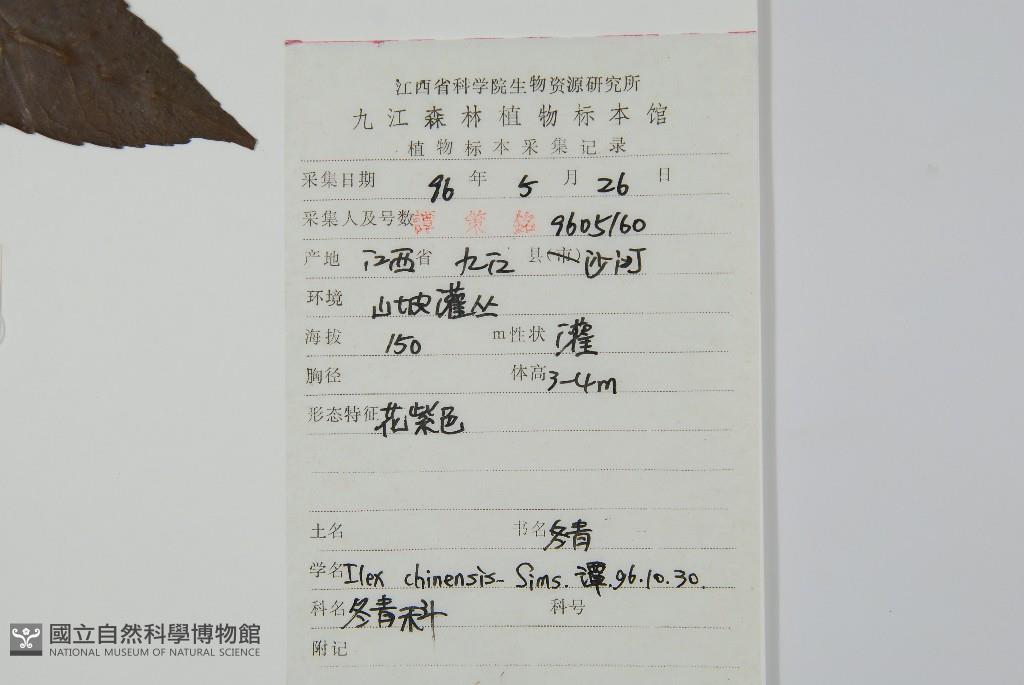 江西省科学院生物资源研究所
九江森林植物标本馆
植物标本采集记录
采集日期 96 年 5 月 26 日
采集人及号数 譚策銘 9605160
产地 江西省 九江 县(市) 沙河
环境 山坡灌丛
海拔 150 m性状 灌
胸径 体高 3-4m
形态特征 花紫色
土名 书名 冬青
学名 Ilex chinensis Sims. 譚.96.10.30.
科名 冬青科 科号
附记
國立自然科學博物館
NATIONAL MUSEUM OF NATURAL SCIENCE